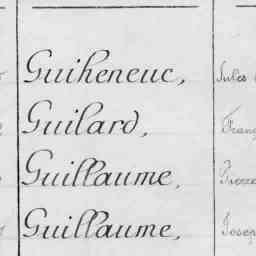 Guiheneuc, Jules
Guilard, Franç
Guillaume, Pierre
Guillaume, Josep